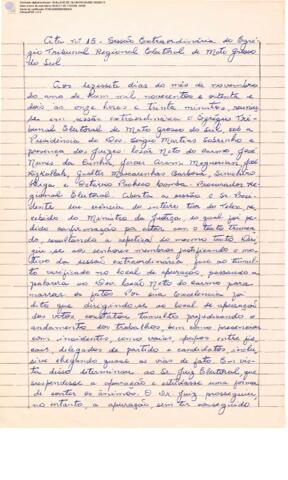 Ata nº 15 - Sessão Extraordinária do Egré-
gio Tribunal Regional Eleitoral de Mato Grosso
do Sul
Aos dezessete dias do mês de novembro
do ano de hum mil, novecentos e oitenta e
dois às onze horas e trinta minutos, reuniu-
se em sessão extraordinária o Egrégio Tri-
bunal Eleitoral de Mato Grosso do Sul, sob a
Presidência do Des. Sergio Martins Sobrinho e
presença dos Juízes Leão Neto do Carmo, José
Nunes da Cunha, Jorcar Aram Megueriam, José
Rizkallah, Gualter Mascarenhas Barbosa,
Higa e Betervo Pacheco Procurador Re-
gional Eleitoral. Aberta a sessão o Sr. Presi-
dente deu ciência do inteiro teor do telex, re-
cebido do Ministro da Justiça, ao qual foi pe-
dido confirmação por estar com o texto trunca-
do, resultando a repetição do mesmo texto.
aos senhores membros justificando o mo-
tivo da sessão extraordinária face ao tumul-
to verificado no local de apuração, passando a
palavra ao Des. Leão Neto do Carmo para
narrar os fatos. Por sua Excelência foi
dito que dirigindo-se ao local de apuração
dos votos constatou tumulto prejudicando o
andamento dos trabalhos, bem como presenciou
com incidentes, como vaias, entre fis-
cais, delegados de partido e candidatos, inclu-
sive chegando quase as vias de fato. Em vis-
ta disso determinou ao Sr. Juiz Eleitoral, que
suspendesse a apuração e estudasse uma forma
de conter os ânimos. O Sr. Juiz prosseguiu,
no entanto, a apuração, sem ter conseguido